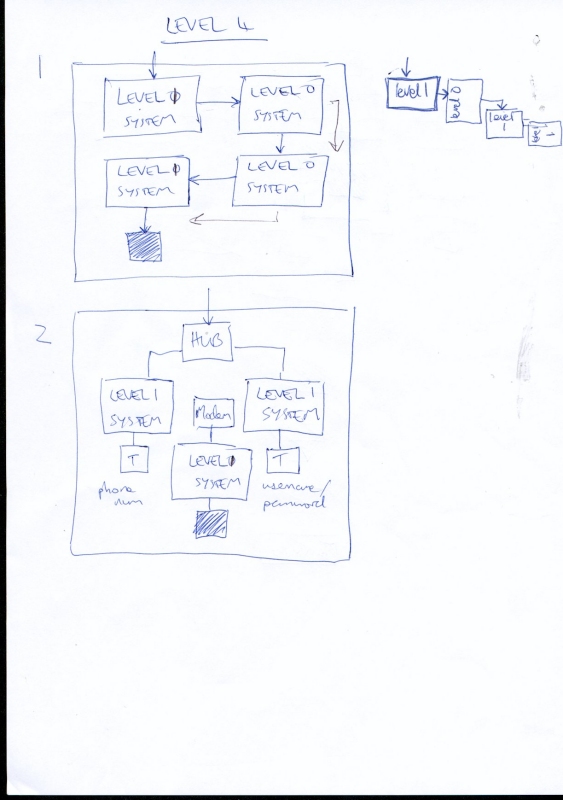 LEVEL 4
1
LEVEL
SYSTEM
LEVEL 0
SYSTEM
LEVEL
SYSTEM
LEVEL 0
SYSTEM
level 1
level 0
level
1
2
HUB
LEVEL 1
SYSTEM
Modem
LEVEL 1
SYSTEM
T
LEVEL
SYSTEM
T
phone
num
username/
password